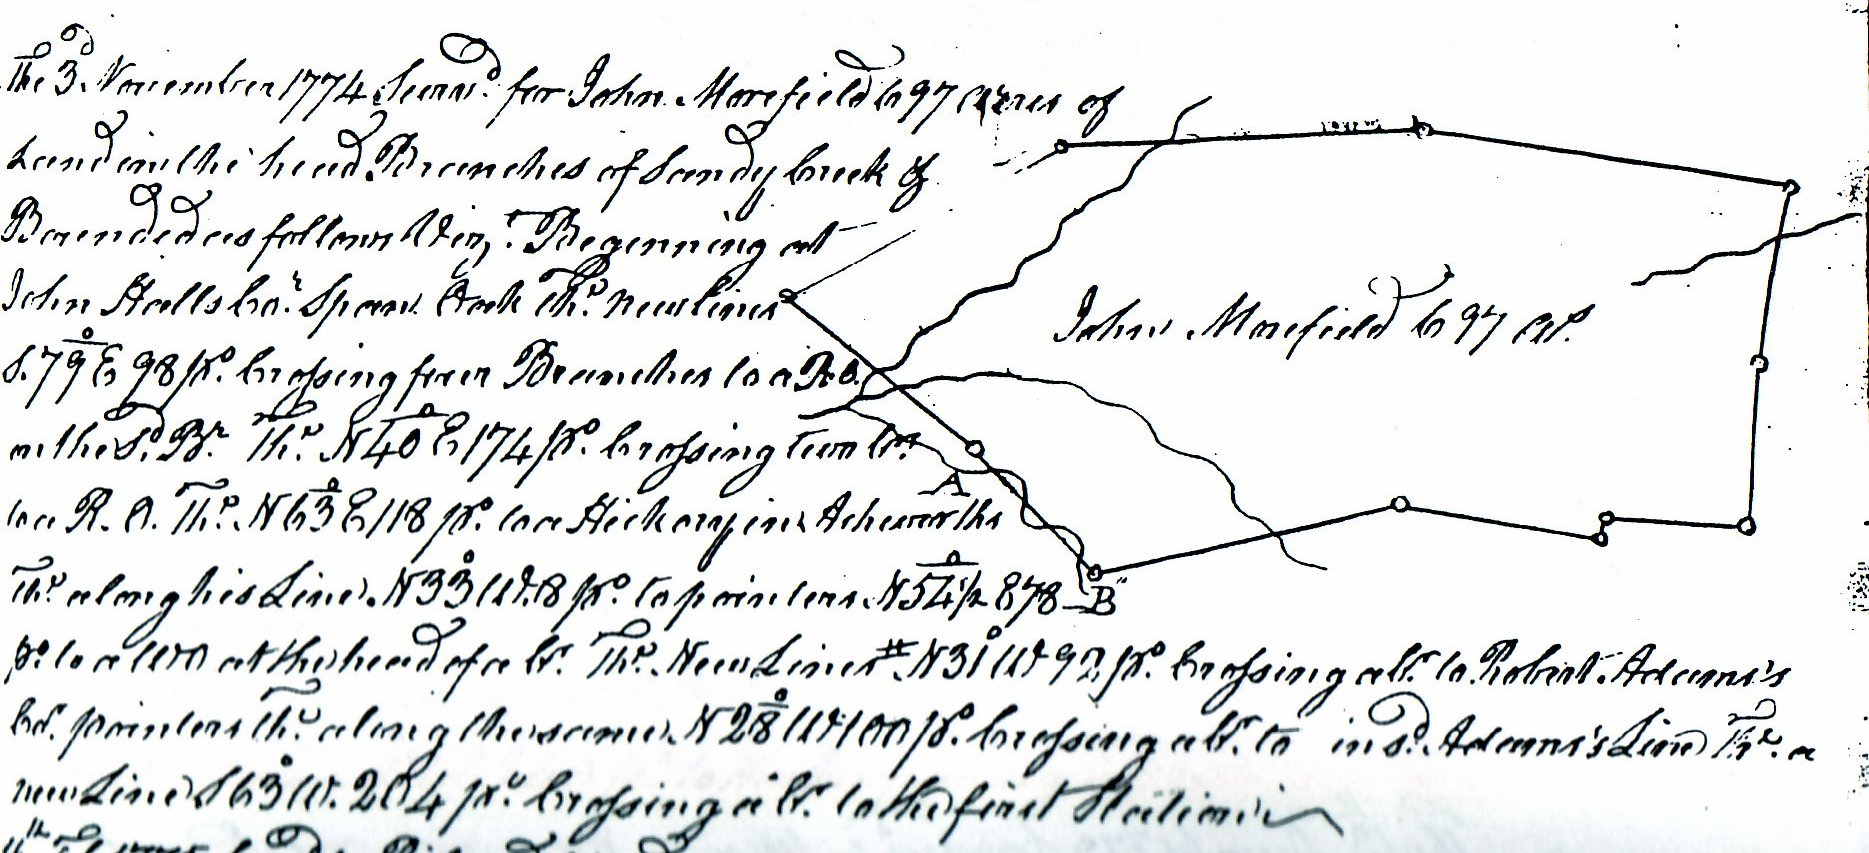 The 3d. November 1774 Survd. for John Morefield 697 acres of
Land on the head Branches of Sandy Creek &
Bounded as follows Vizt. Beginning at
John Halls Cor. Span. Oak Thr. new lines
S.79° E 98 po. Crossing four Branches to a R O.
on the Sd. Br. Thr. N40° E 174 po. Crossing two br.
to a R. O. Thr. N63° E 118 po. to a Hickory in Achworths
Thr. along his Line N33° W. 8 po. to pointers N54°1/2 E 78
po. to a WO at the head of a br. Thr. New Lines N31° W 92 po. Crossing a br. to Robert Adams's
Cor. pointers Thr. along the same N28° W 100 po. Crossing a br. to in sd. Adams's Line Thr. a
new Line S63° W. 204 po. Crossing a br. to the first Station
John Morefield 697 as.
A
B